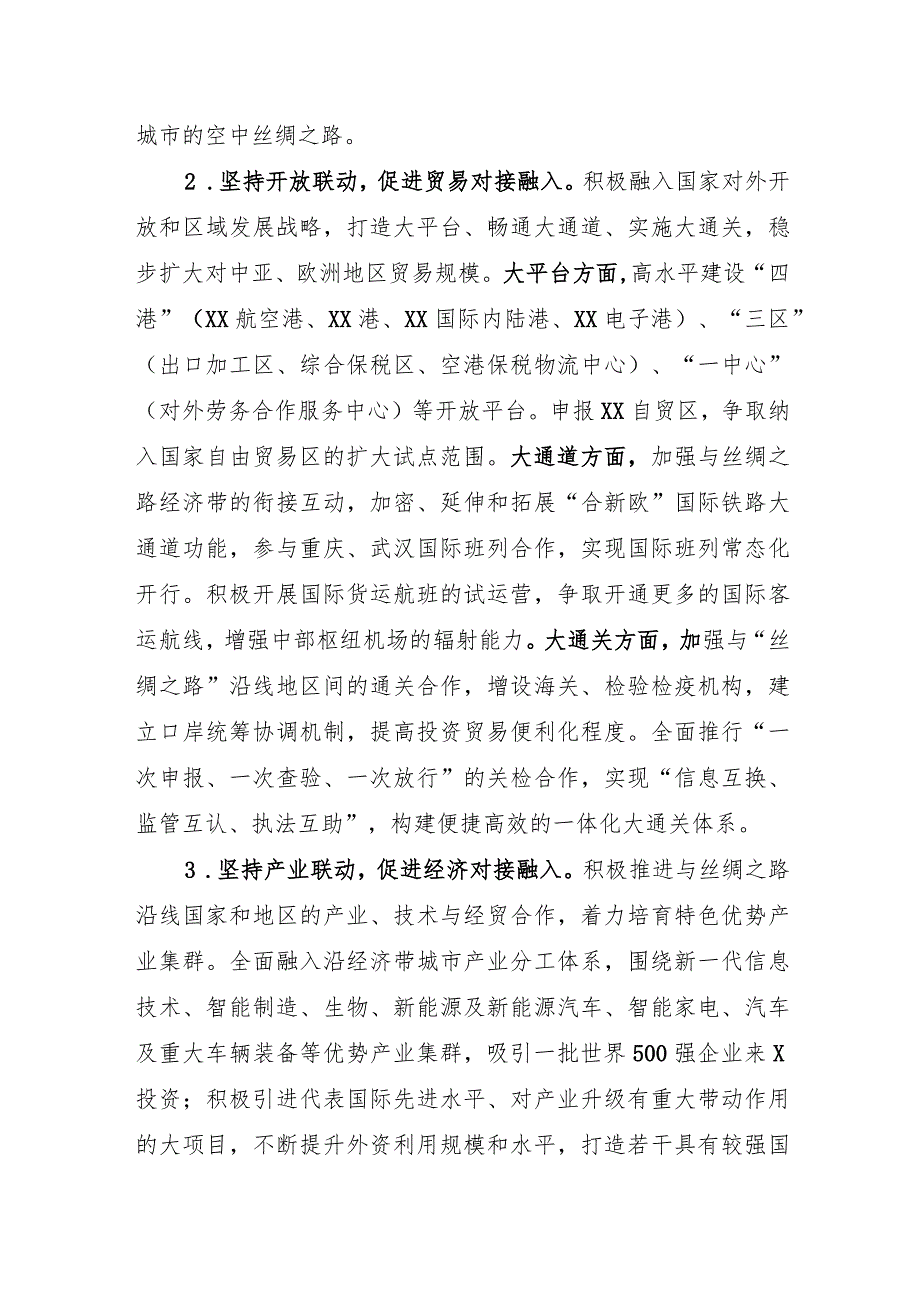 城市的空中丝绸之路。
2 .坚持开放联动，促进贸易对接融入。积极融入国家对外开
放和区域发展战略，打造大平台、畅通大通道、实施大通关，稳
步扩大对中亚、欧洲地区贸易规模。大平台方面,高水平建设“四
港”（XX 航空港、XX 港、XX 国际内陆港、XX 电子港）、“三区”
（出口加工区、综合保税区、空港保税物流中心）、“一中心”
（对外劳务合作服务中心）等开放平台。申报 XX 自贸区，争取纳
入国家自由贸易区的扩大试点范围。大通道方面，加强与丝绸之
路经济带的衔接互动，加密、延伸和拓展“合新欧”国际铁路大
通道功能，参与重庆、武汉国际班列合作，实现国际班列常态化
开行。积极开展国际货运航班的试运营，争取开通更多的国际客
运航线，增强中部枢纽机场的辐射能力。大通关方面，加强与“丝
绸之路”沿线地区间的通关合作，增设海关、检验检疫机构，建
立口岸统筹协调机制，提高投资贸易便利化程度。全面推行“一
次申报、一次查验、一次放行”的关检合作，实现“信息互换、
监管互认、执法互助”，构建便捷高效的一体化大通关体系。
3 .坚持产业联动，促进经济对接融入。积极推进与丝绸之路
沿线国家和地区的产业、技术与经贸合作，着力培育特色优势产
业集群。全面融入沿经济带城市产业分工体系，围绕新一代信息
技术、智能制造、生物、新能源及新能源汽车、智能家电、汽车
及重大车辆装备等优势产业集群，吸引一批世界 500 强企业来 X
投资；积极引进代表国际先进水平、对产业升级有重大带动作用
的大项目，不断提升外资利用规模和水平，打造若干具有较强国